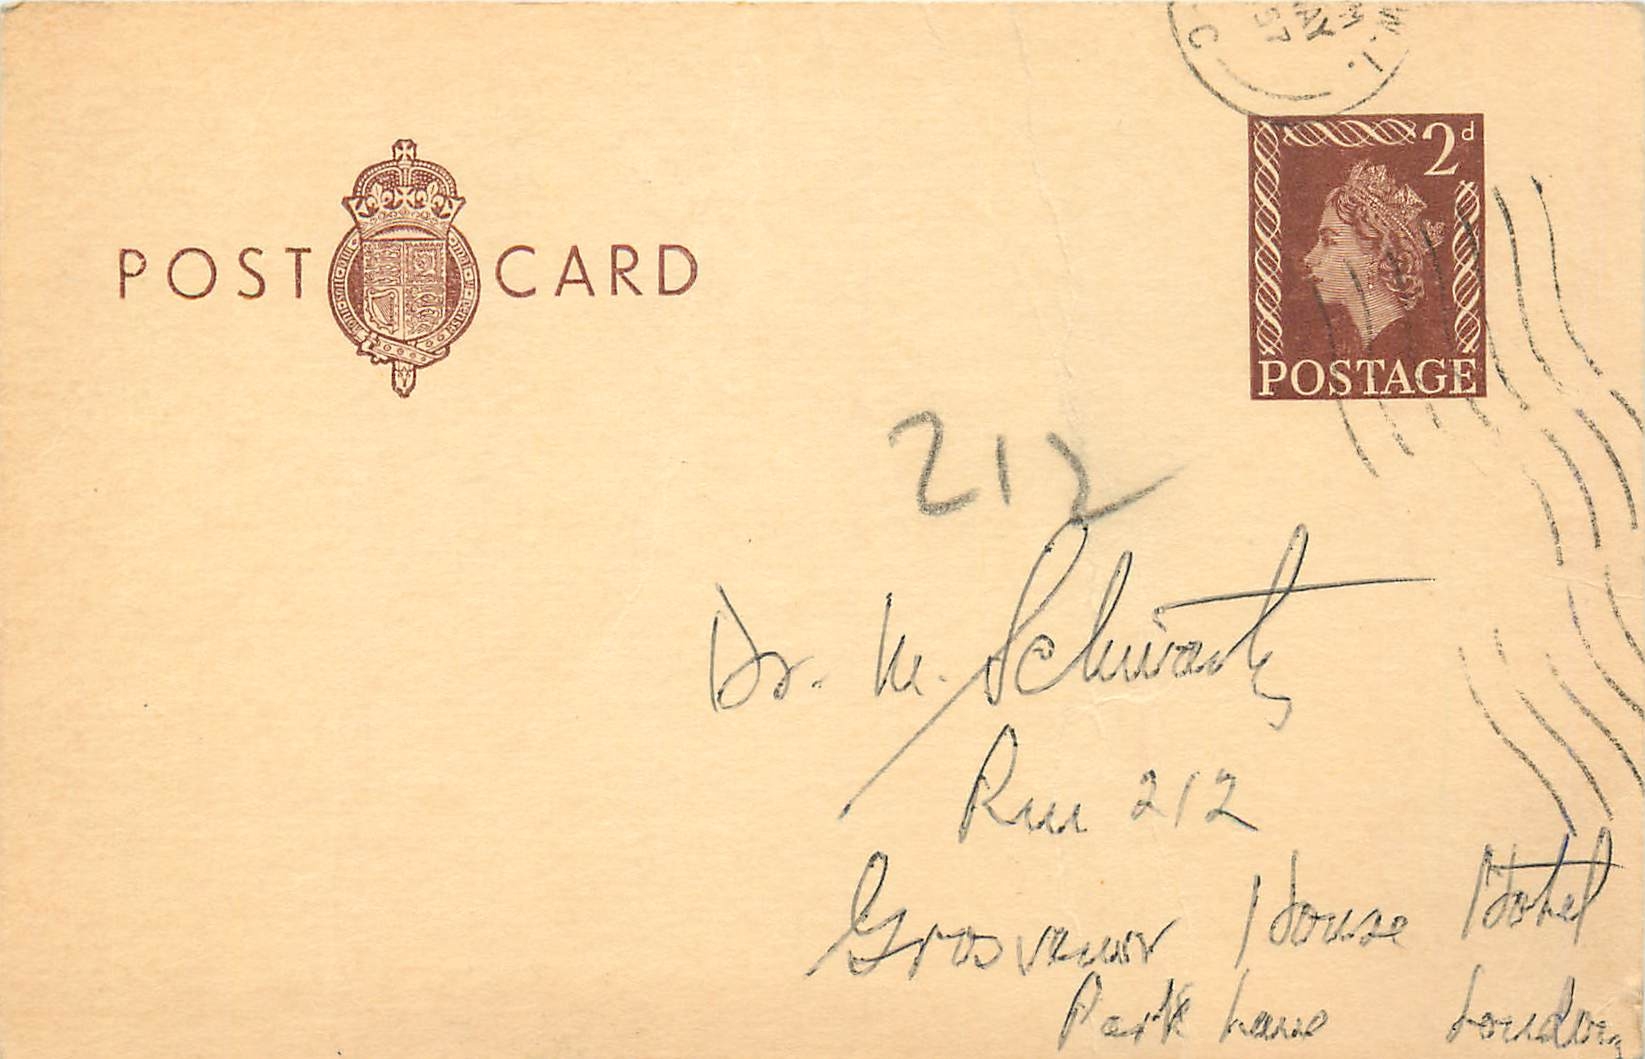 W.1.
MAY
57
C
2d
POST CARD
POSTAGE
212
Dr. M. Schwartz
Rm 212
Grosvenor House Hotel
Park Lane London